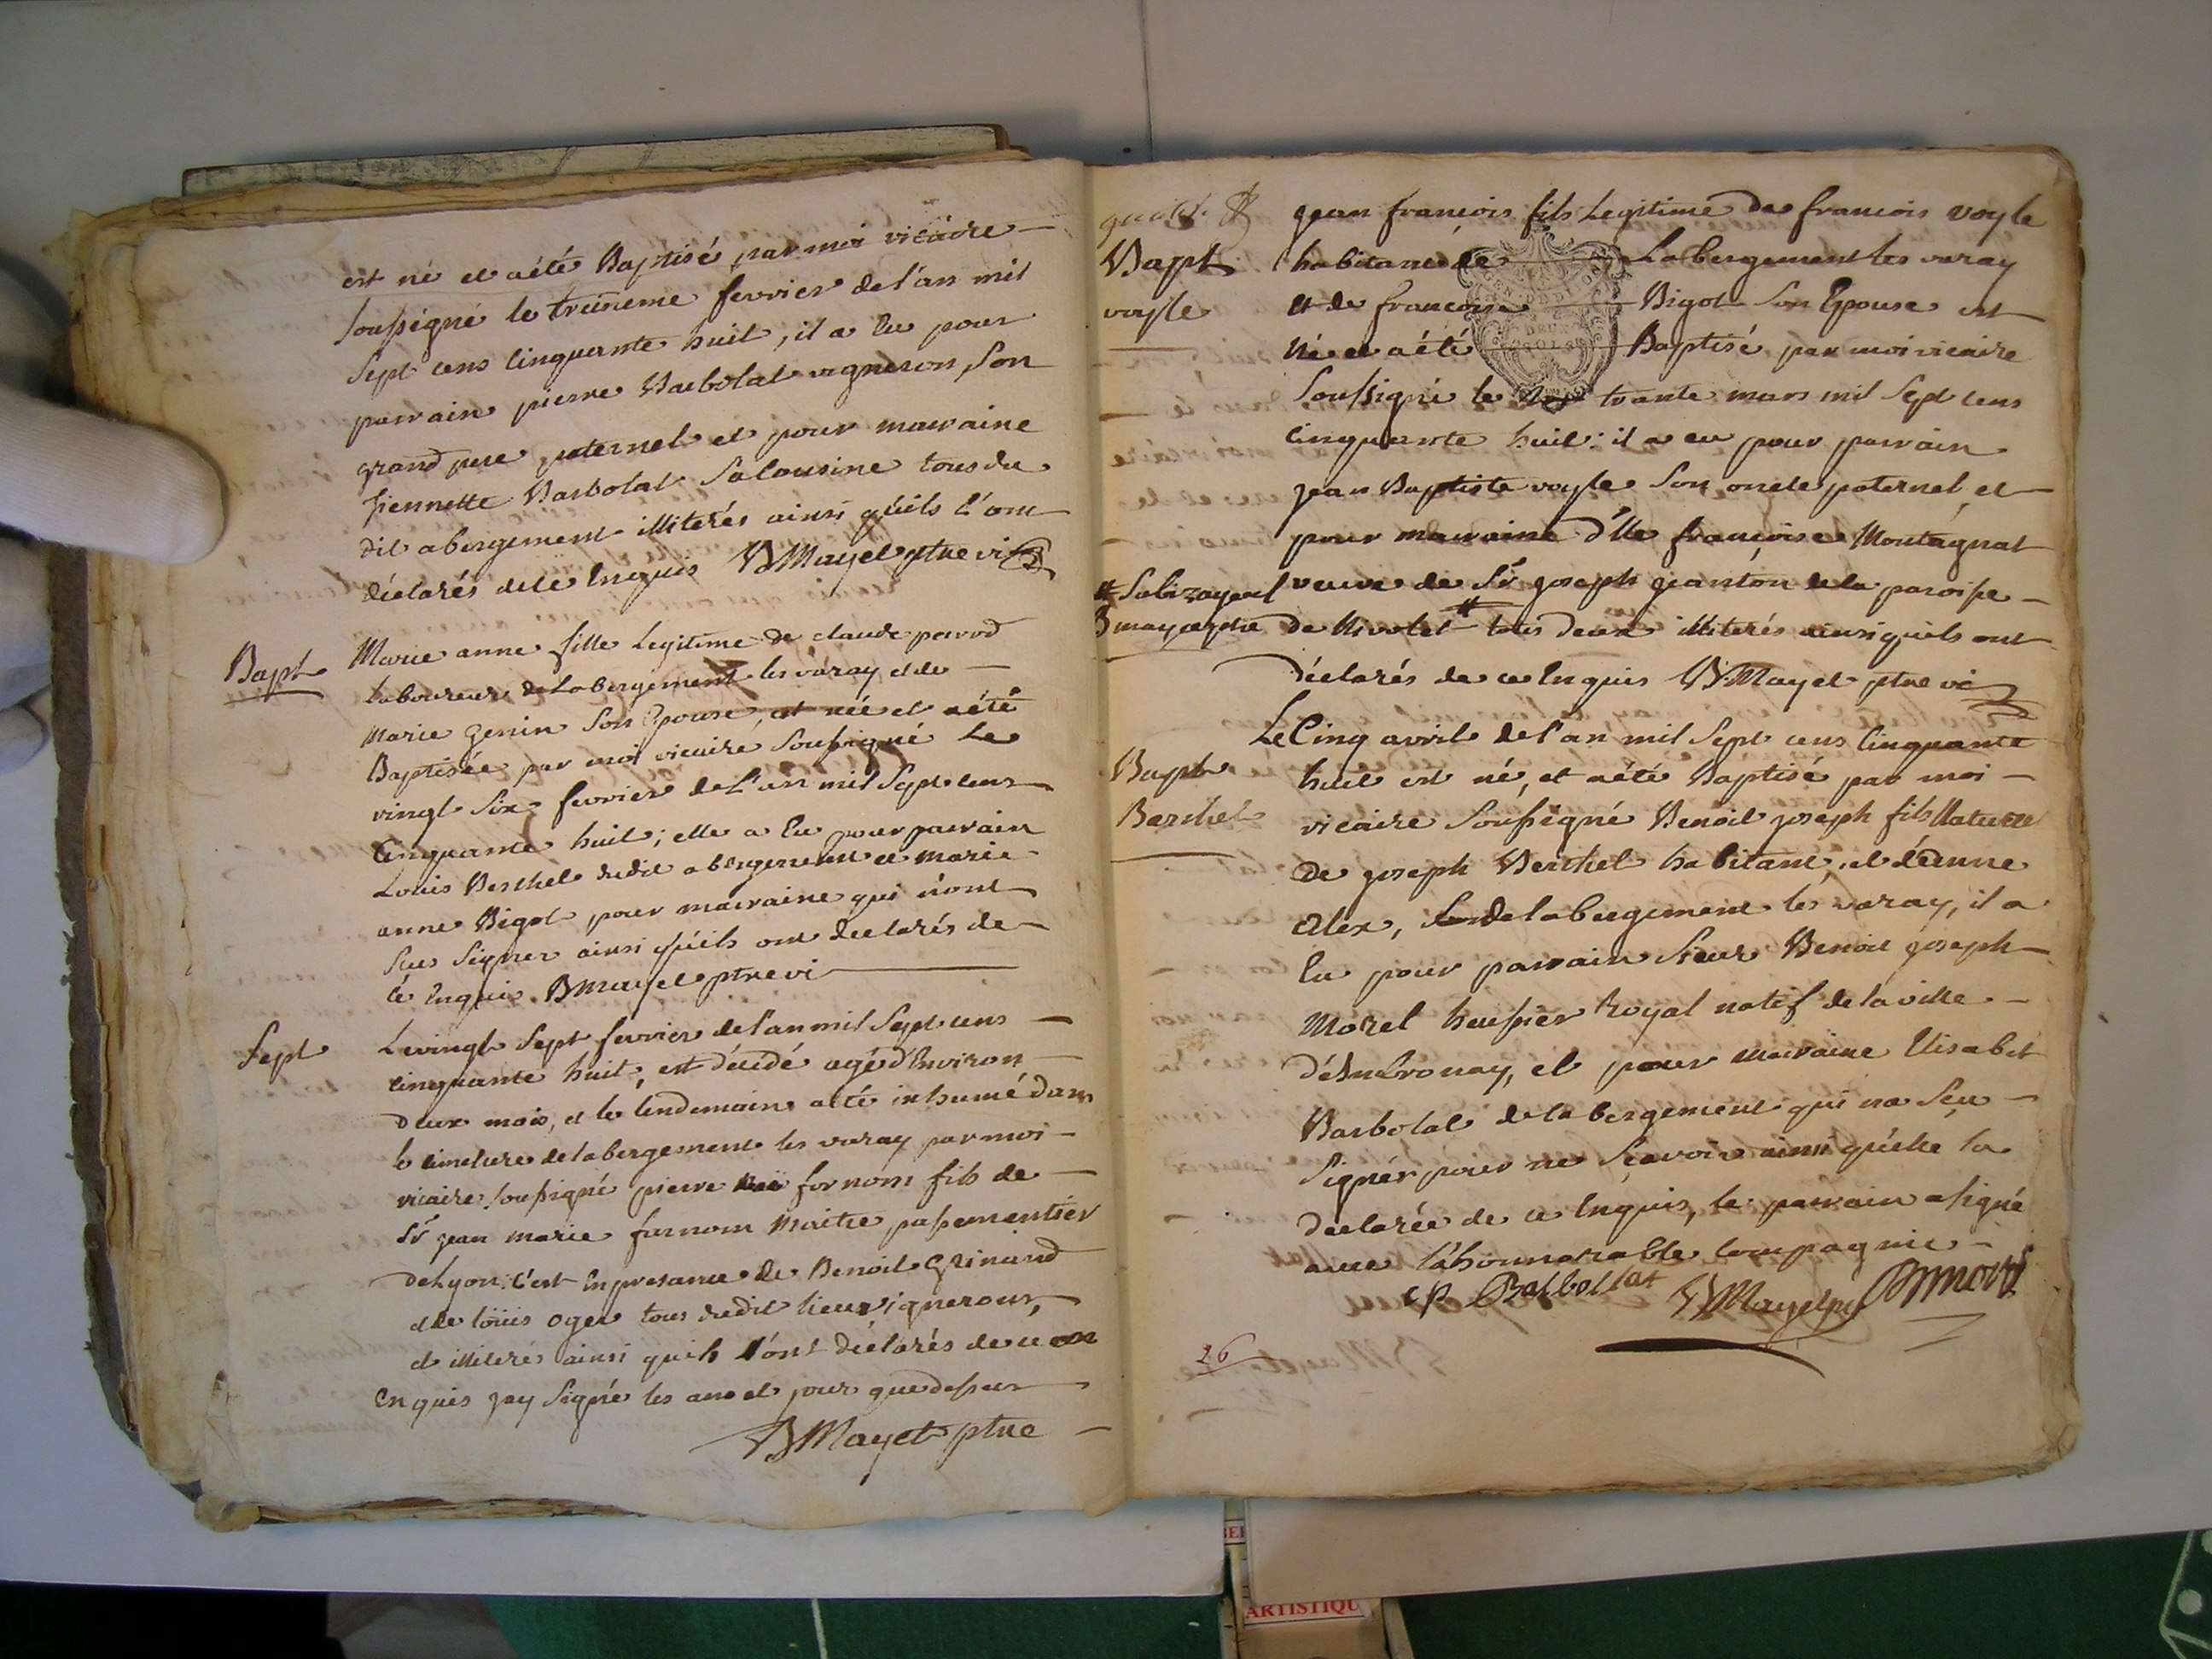 est né et aété Baptisé par moi vicaire
soussigné le treizieme fevrier de l'an mil
sept cens cinquante huit, il a Eu pour
parrain pierre Barbolat vigneron, son
grand pere paternel et pour marraine
pierrette Barbolat sa cousine tous du
dit abergement illiterés ainsi qu'ils l'ont
déclarés de ce Enquis BMayet ptre vic
Bapt
Marie anne fille Legitime de claude perrod
laboureur de Labergement les varay et de
Marie Genin Son Epouse, est née et aété
Baptisée par moi vicaire soussigné Le
vingt Six fevrier de L'an mil Sept cens
Cinquante huit; elle a Eu pour parrain
Louis Berthet dudit abergement et marie
anne Bigot pour marraine qui n'ont
sçus signer ainsi qu'ils ont declarés de
ce Enquis BMayet ptre vi
Sept
Le vingt Sept fevrier de l'an mil Sept cens
cinquante huit, est décédé agé d'Environ
deux mois, et le lendemain aété inhumé dans
le cimetiere de labergement les varay par moi
vicaire soussigné pierre fornom fils de
Sr jean marie furnom Maitre passementier
de Lyon: c'est En presance de Benoit Grinand
et de loüis oger tous dudit lieu vignerons,
et illiterés ainsi qu'ils l'ont déclarés de ce
Enquis jay signé les an et jour que dessus
BMayet ptre
Bapt
voyle
jean francois fils Legitime de francois voyle
habitant de Labergement les varay
et de francoise Bigot son Epouse est
né et aété Baptisé par moi vicaire
Soussigné le trante mars mil Sept cens
cinquante huit: il a eu pour parrain
jean Baptiste voyle Son oncle paternel, et
pour marraine d'lle françoise Montagnat
veuve de Sr joseph jeanton de la paroisse
# Sa bizayeul
Bmayet ptre
de Nivolet # tous deux illiterés ainsi quils ont
déclarés de ce Enquis BMayet ptre vic
Bapt
Berthet
Le Cinq avril de l'an mil Sept cens Cinquante
huit est né, et aété Baptisé par moi
vicaire soussigné Benoit joseph fils Naturel
de joseph Berthet habitant, et d'anne
alex, de labergement les varay, il a
Eu pour parrain Sieur Benoit joseph
Morel huissier Royal natif de la ville
d'Ambronay, et pour marraine Elisabet
Barbolat de labergement qui na sçu
Signér pour ne sçavoir ainsi qu'elle la
declarée de ce Enquis, le parrain asigné
avec l'ahonnorable compagnie
cp Balbollat BMayet ptre BJmorel
26
ARTISTIQU